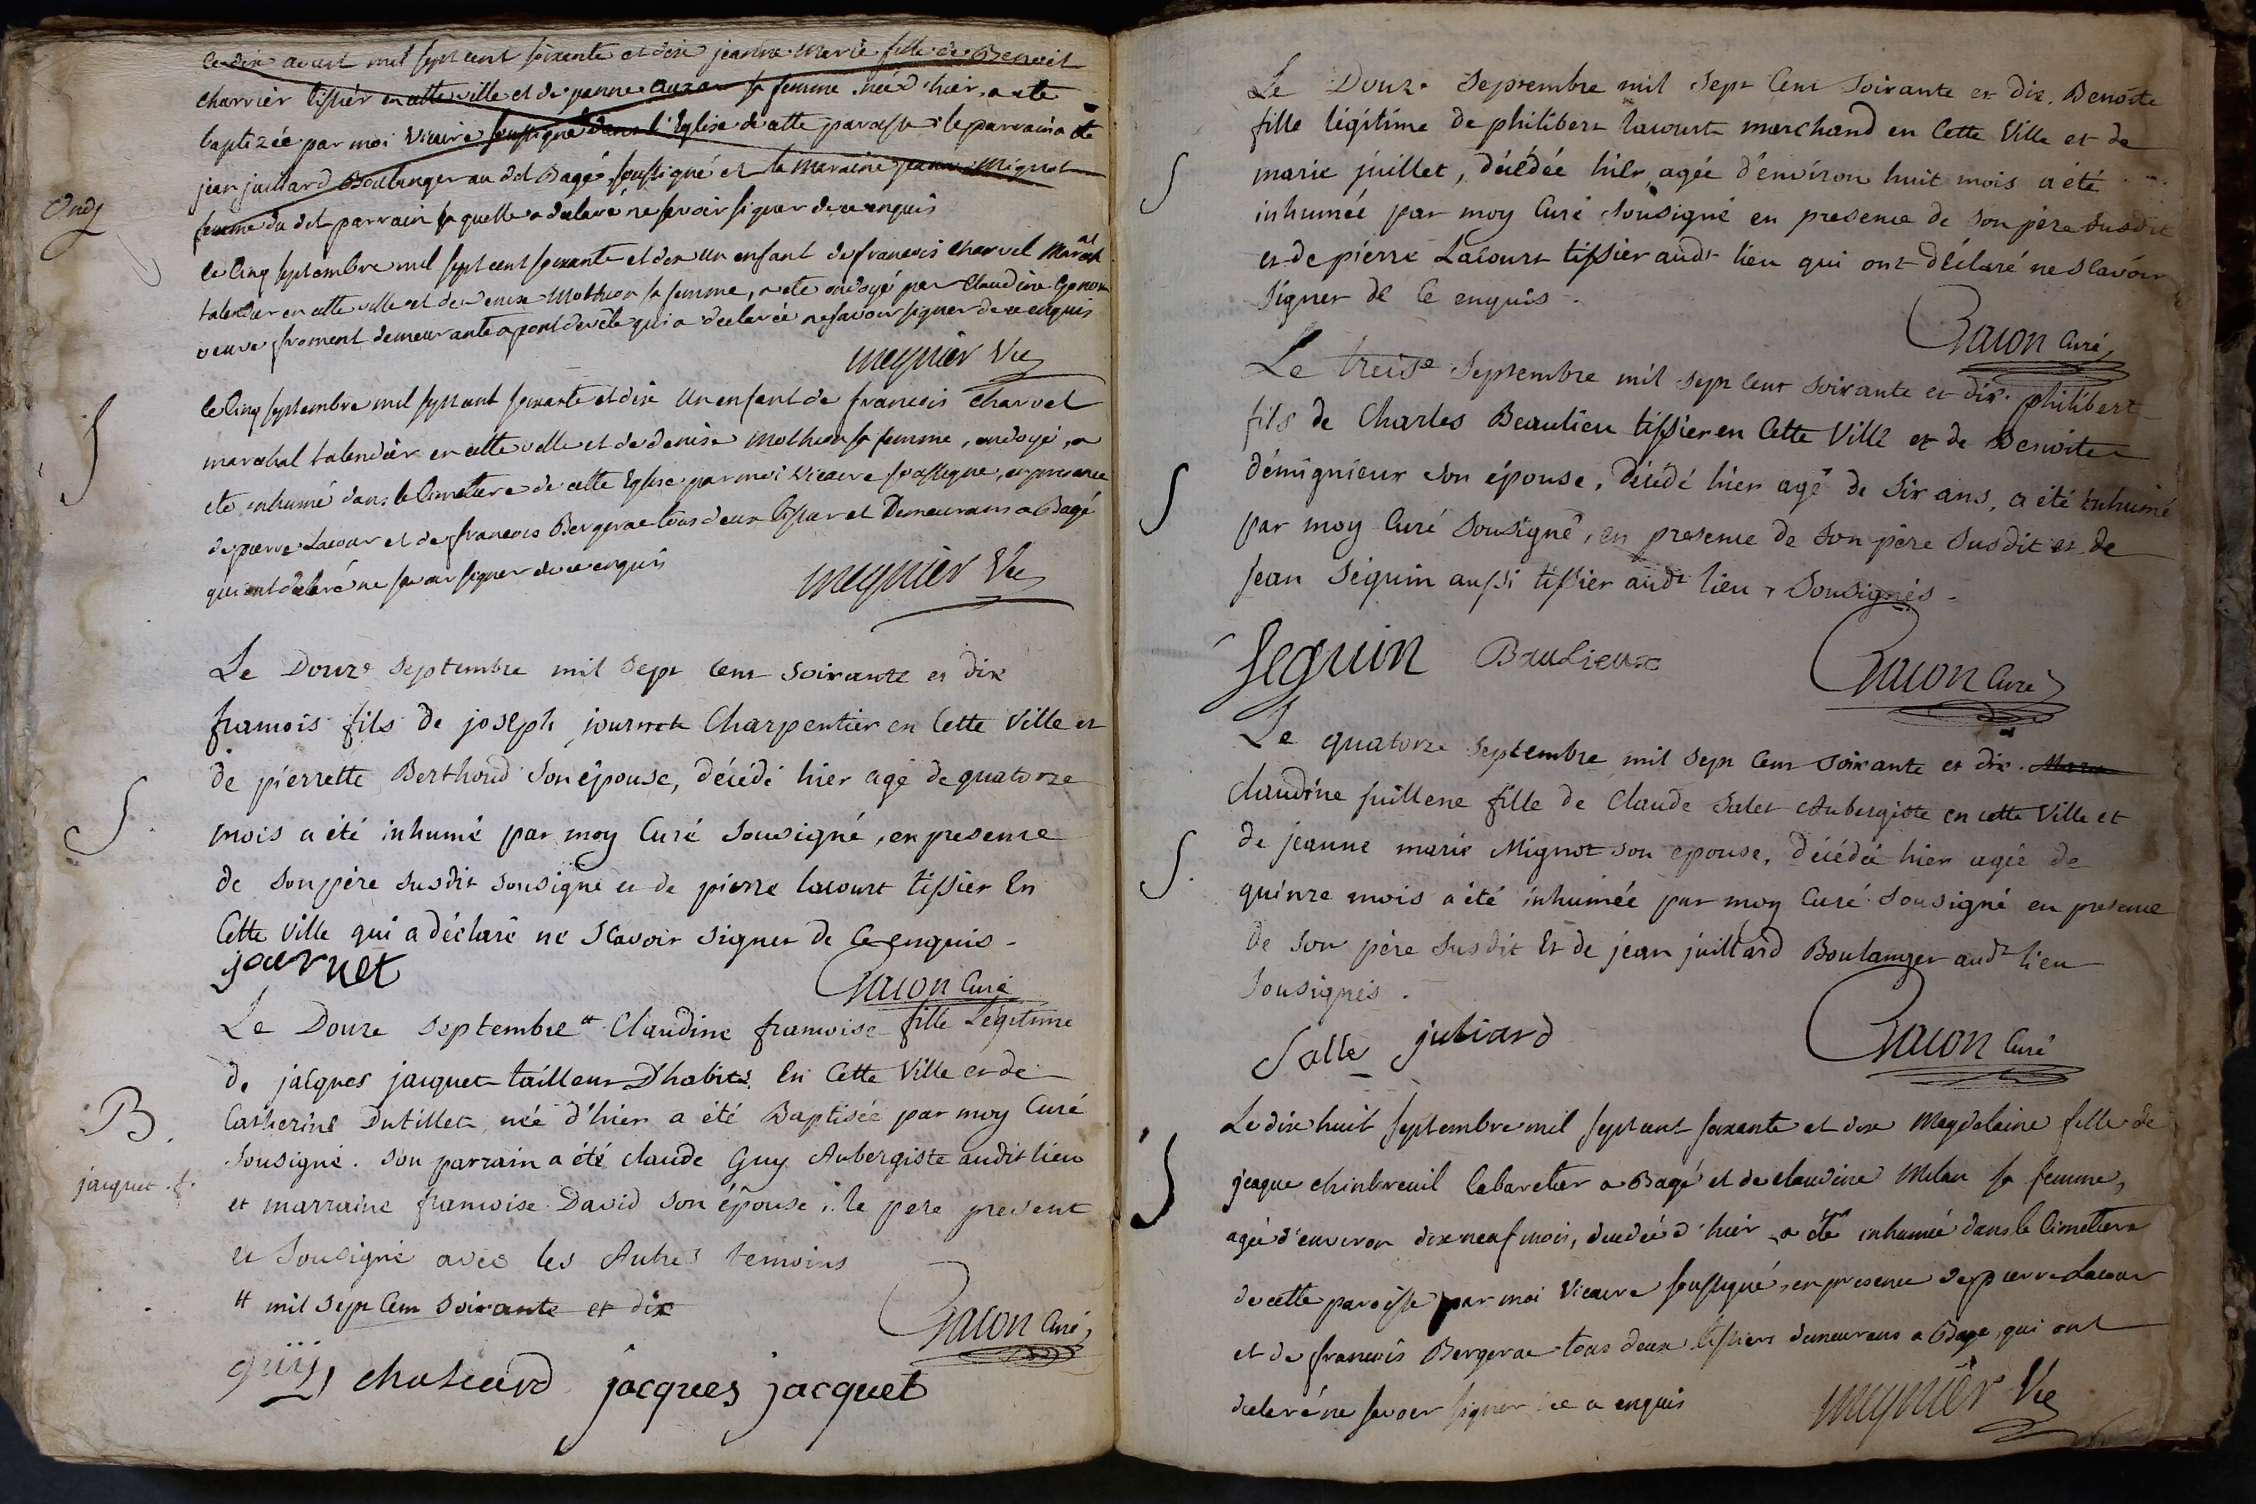 le dix aoust mil sept cent soixante et dix jeanne Marie fille de Benoit
charvier tissier en cette ville et de jeanne sa femme née d'hier a ete
baptizée par moi Vicaire soussigné dans l'Eglise de cette paroisse le parrain a ete
jean juillard Boulanger au dit Bagé soussigné et la maraine jeanne Mignot
femme du dit parrain laquelle a declaré ne savoir signer de ce enquis
Ondy
le Cinq septembre mil sept cent soixante et dix un enfant de francois charvet Marechal
talendier en cette ville et de denise Mothion sa femme, a ete ondoyé par Claudine
veuve froment demeurante a pont de vêle qui a declarée ne savoir signer de ce enquis
meynier Vic
S
le Cinq septembre mil sept cent soixante et dix Un enfant de francois charvet
marechal talendier en cette ville et de denise mothion sa femme, ondoyé, a
ete inhumé dans le Cimetiere de cette Eglise par moi Vicaire soussigne, en presence
de pierre Lacour et de francois Bergerac tous deux tissier et Demeurans a Bagé
qui ont declaré ne savoir signer de ce enquis
meynier Vic
Le Douze Septembre mil Sept Cent Soixante et dix
francois fils de joseph journet Charpentier en Cette Ville et
de pierrette Berthoud Son épouse, décédé hier agé de quatorze
S.
mois a été inhumé par moy Curé Sousigné, en presence
de Son père susdit sousigné et de pierre lacourt tissier En
Cette Ville qui a déclaré ne Scavoir Signer de Ce enquis -
journet
Gacon Curé
Le Douze Septembre # Claudine francoise fille Légitime
de jacques jacquet tailleur D'habits En Cette Ville et de
B.
Catherine Dutillet, née d'hier a été Baptisée par moy Curé
Sousigné. Son parrain a été claude Guy Aubergiste audit lieu
jacquet .f.
et marraine francoise David Son épouse, le pere present
et Sousigné avec les Autres temoins
# mil Sept Cent Soixante et dix
Gacon Curé
guÿ chuseard jacques jacquet
Le Douze Septembre mil Sept Cent Soixante et dix, Benoite
fille légitime de philibert lacourt marchand en Cette Ville et de
S
marie juillet, décédée hier agée d'environ huit mois a été
inhumée par moy Curé Sousigné en presence de Son père susdit
et de pierre Lacourt tissier audt lieu qui ont déclaré ne Scavoir
Signer de Ce enquis -
Gacon Curé
Le treise Septembre mil Sept Cent Soixante et dix philibert
fils de Charles Beaulieu tissier en Cette Ville et de Benoite
S
démignieur Son épouse, décédé hier agé de Six ans, a été inhumé
par moy Curé Sousigné, en presence de Son père Susdit et de
Jean Séguin aussi tissier audt lieu, Sousignés -
Seguin Baulieux
Gacon Curé
Le quatorze Septembre mil Sept Cent Soixante et dix.
Claudine juillene fille de Claude Salet Aubergiste en cette Ville et
S.
de jeanne marie Mignot Son épouse, décédée hier agée de
quinze mois a été inhumée par moy Curé Sousigné en presence
de Son père Susdit Et de jean juillard Boulanger audt lieu
Sousignés.
Salle juliard
Gacon Curé
Le dix huit septembre mil sept cent soixante et dix Magdelaine fille de
S
jeaque chinbreuil Cabaretier a Bagé et de claudine Milan sa femme,
agée d'environ dix neuf mois, decedée d'hier a été inhumée dans le Cimetiere
de cette paroisse par moi Vicaire soussigné, en presence de pierre Lacour
et de francois Bergerac tous deux tissiers demeurans a Bage, qui ont
declaré ne savoir signer ce enquis
meynier Vic